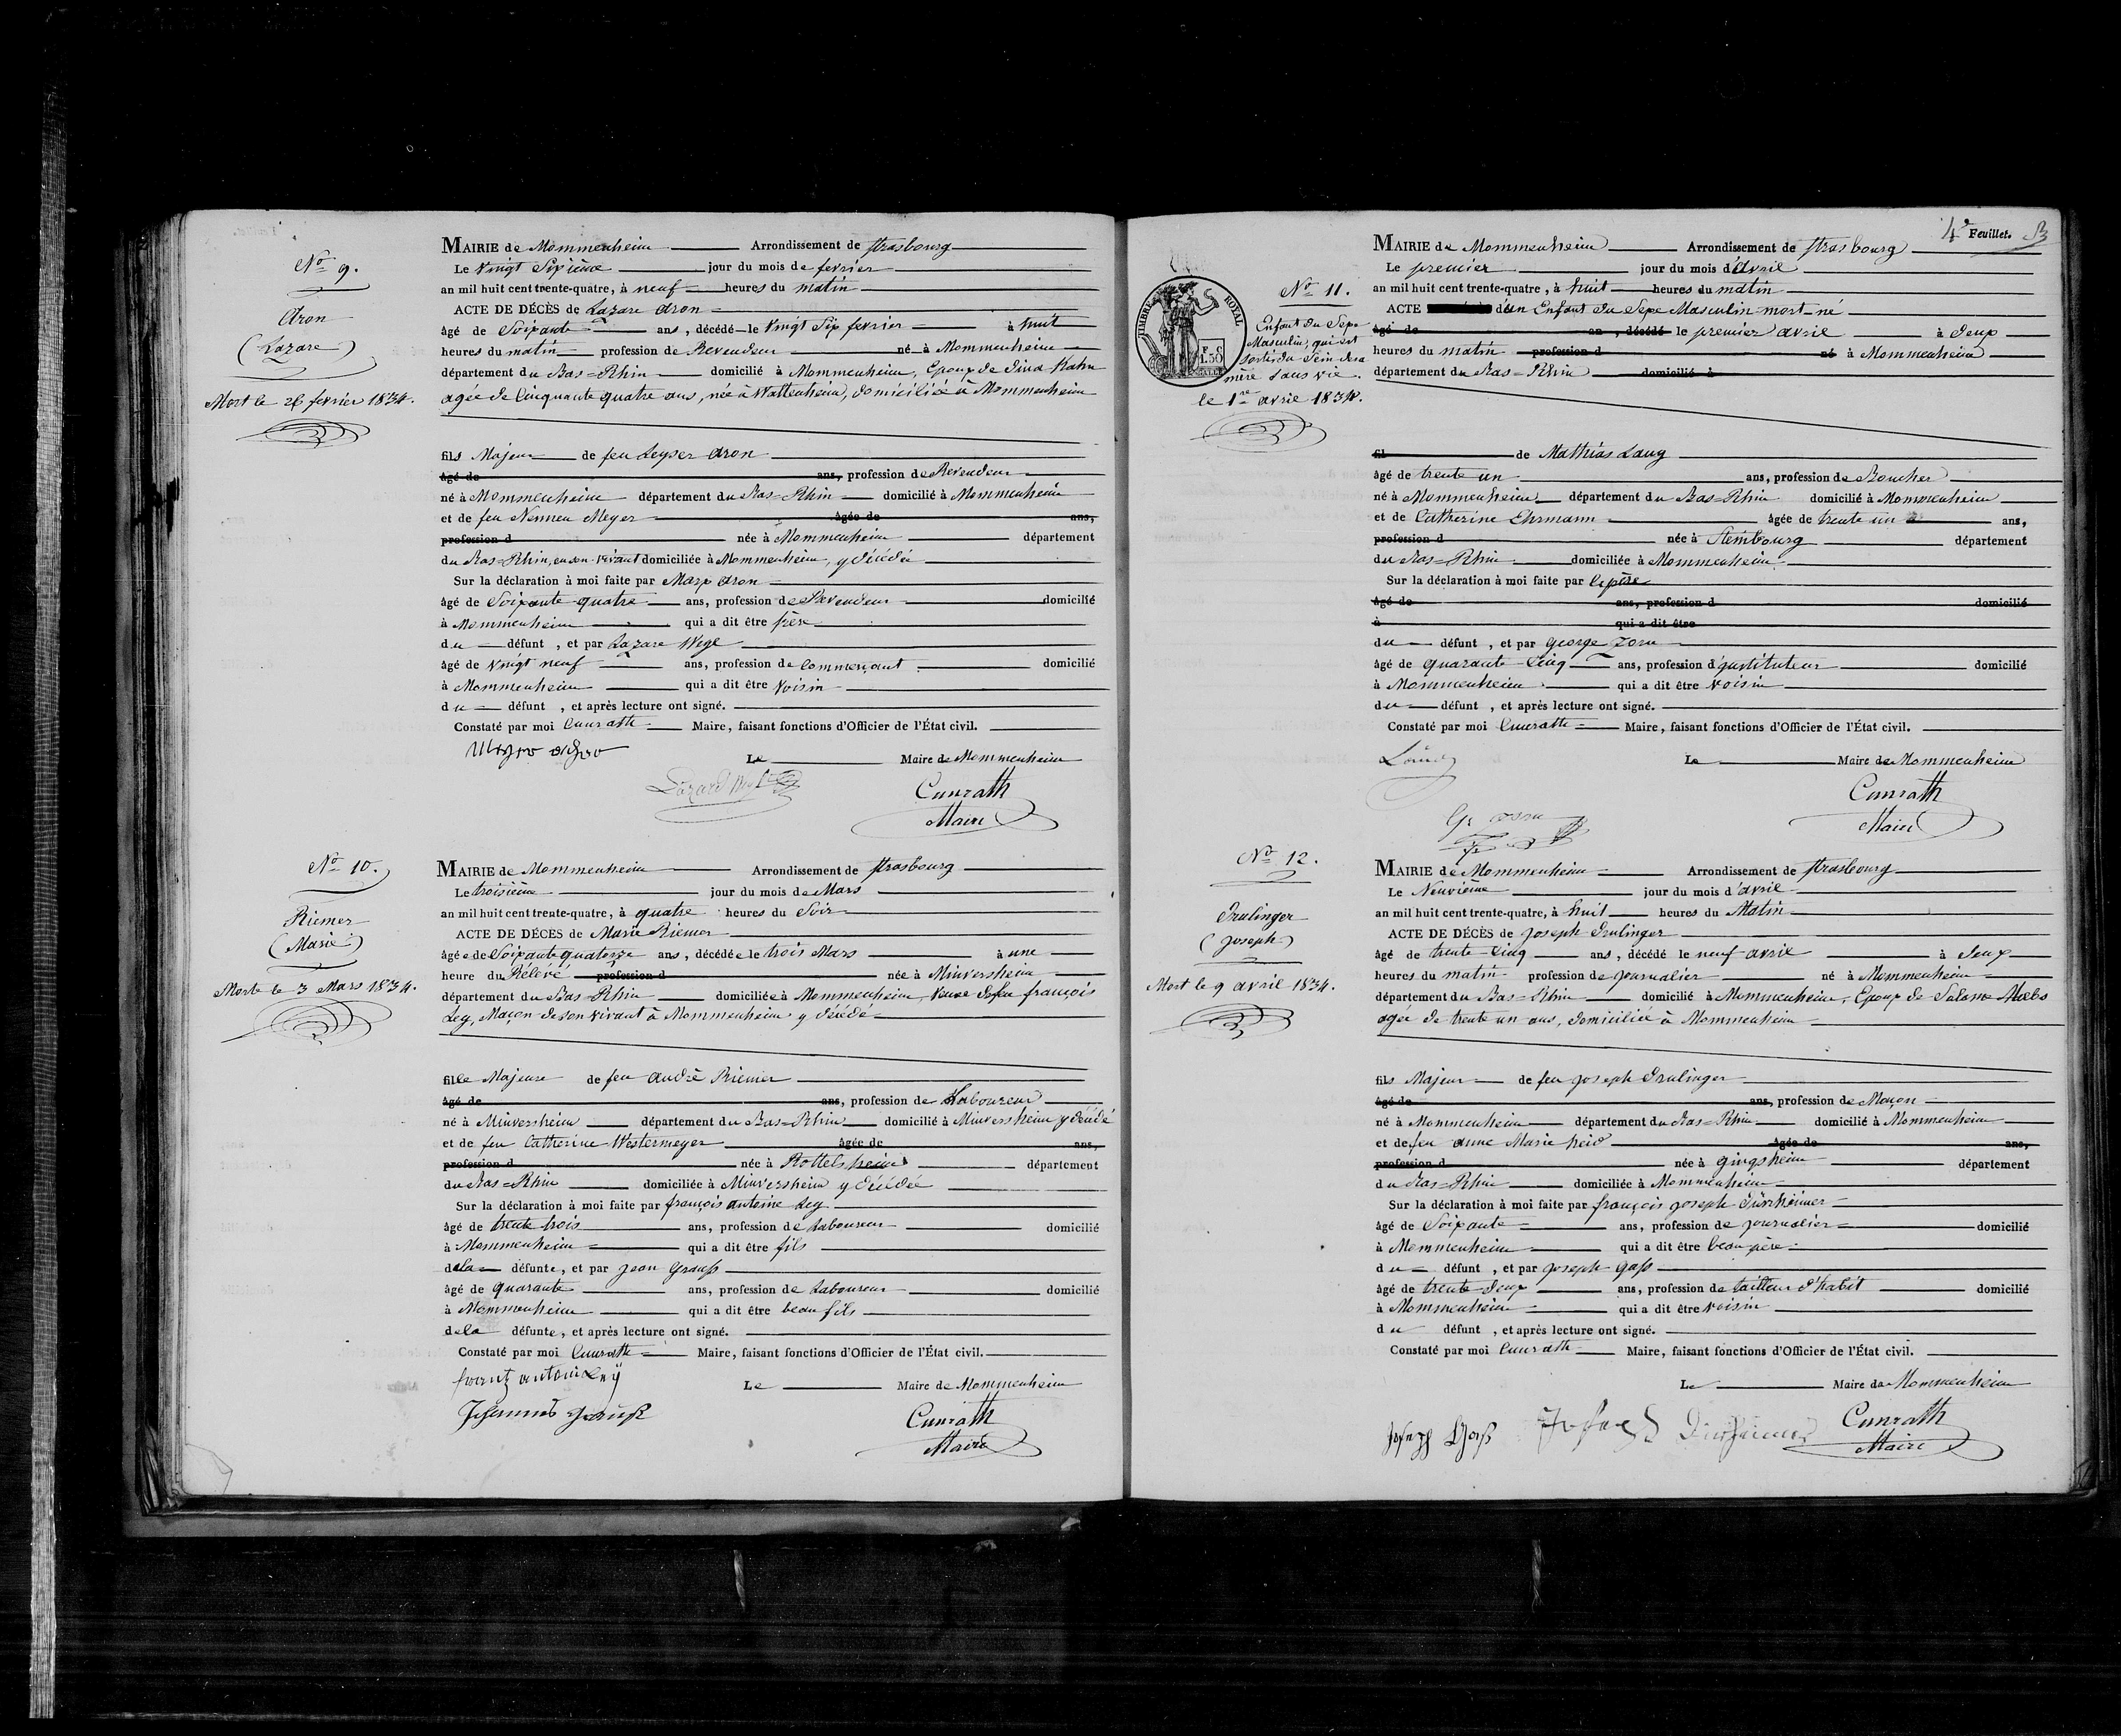 No 9.
Aron
(Lazare)
Mort le 26 fevrier 1834.
MAIRIE de Mommenheim Arrondissement de Strasbourg
Le vingt Sixième jour du mois de fevrier
an mil huit cent trente-quatre, à neuf heures du matin
ACTE DE DÉCÈS de Lazare Aron
âgé de Soixante ans, décédé le vingt Six fevrier à huit
heures du matin profession de Revendeur né à Mommenheim
département du Bas-Rhin domicilié à Mommenheim, Epoux de Dina Kahn
agée de Cinquante quatre ans, née à Wattenheim, domiciliée à Mommenheim
fils Majeur de feu Leyser Aron
âgé de ans, profession de Revendeur
né à Mommenheim département du Bas-Rhin domicilié à Mommenheim
et de feu Nennen Meyer âgée de ans,
profession d née à Mommenheim département
du Bas-Rhin, en son vivant domiciliée à Mommenheim, y décédée
Sur la déclaration à moi faite par Marx Aron
âgé de Soixante quatre ans, profession de Revendeur domicilié
à Mommenheim qui a dit être frère
du défunt, et par Lazare Weyl
âgé de vingt neuf ans, profession de Commerçant domicilié
à Mommenheim qui a dit être voisin
du défunt, et après lecture ont signé.
Constaté par moi Cunrath Maire, faisant fonctions d'Officier de l'État civil.
Le Maire de Mommenheim
Cunrath
Maire
No 10.
Riemer
(Marie)
Morte le 3 Mars 1834.
MAIRIE de Mommenheim Arrondissement de Strasbourg
Le troisième jour du mois de Mars
an mil huit cent trente-quatre, à quatre heures du Soir
ACTE DE DÉCÈS de Marie Riemer
âgée de Soixante quatorze ans, décédée le trois Mars à une
heure du Rélévé profession d née à Minversheim
département du Bas-Rhin domiciliée à Mommenheim, veuve de feu françois
Ley, Maçon de son vivant à Mommenheim y décédé
fille Majeure de feu André Riemer
âgé de ans, profession de Laboureur
né à Minversheim département du Bas-Rhin domicilié à Minversheim y décédé
et de feu Catherine Westermeyer âgée de ans,
profession d née à Rottelsheim département
du Bas-Rhin domiciliée à Minversheim y décédée
Sur la déclaration à moi faite par françois antoine Ley
âgé de trente trois ans, profession de Laboureur domicilié
à Mommenheim qui a dit être fils
de la défunte, et par Jean Grauss
âgé de quarante ans, profession de Laboureur domicilié
à Mommenheim qui a dit être beau fils
de la défunte, et après lecture ont signé.
Constaté par moi Cunrath Maire, faisant fonctions d'Officier de l'État civil.
Le Maire de Mommenheim
Cunrath
Maire
4e Feuillet.
TIMBRE ROYAL
No 11.
Enfant du Sexe
Masculin, qui est
sorti du Sein de sa
mère sans vie.
le 1re avril 1834.
MAIRIE de Mommenheim Arrondissement de Strasbourg
Le premier jour du mois d'Avril
an mil huit cent trente-quatre, à huit heures du matin
ACTE d'un Enfant du Sexe Masculin mort-né
âgé de an, décédé le premier avril à deux
heures du matin profession d né à Mommenheim
département du Bas-Rhin domicilié à
fil de Mathias Laug
âgé de trente un ans, profession de Boucher
né à Mommenheim département du Bas-Rhin domicilié à Mommenheim
et de Catherine Ehrmann âgée de trente un ans,
profession d née à Steinbourg département
du Bas-Rhin domiciliée à Mommenheim
Sur la déclaration à moi faite par le père
âgé de ans, profession d domicilié
à qui a dit être
du défunt, et par George Zorn
âgé de quarante-Cinq ans, profession d'Jnstituteur domicilié
à Mommenheim qui a dit être voisin
du défunt, et après lecture ont signé.
Constaté par moi Cunrath Maire, faisant fonctions d'Officier de l'État civil.
Le Maire de Mommenheim
Cunrath
Maire
No 12.
Drulinger
(Joseph)
Mort le 9 avril 1834.
MAIRIE de Mommenheim Arrondissement de Strasbourg
Le Neuvième jour du mois d'avril
an mil huit cent trente-quatre, à huit heures du Matin
ACTE DE DÉCÈS de Joseph Drulinger
âgé de trente-Cinq ans, décédé le neuf avril à deux
heures du matin profession de Journalier né à Mommenheim
département du Bas-Rhin domicilié à Mommenheim, Epoux de Salomé Moebs
agée de trente un ans, domiciliée à Mommenheim
fils Majeur de feu Joseph Drulinger
âgé de ans, profession de Maçon
né à Mommenheim département du Bas-Rhin domicilié à Mommenheim
et de feu anne Marie heid âgée de ans,
profession d née à Gingsheim département
du Bas-Rhin domiciliée à Mommenheim
Sur la déclaration à moi faite par françois Joseph Dürrheimer
âgé de Soixante ans, profession de Journalier domicilié
à Mommenheim qui a dit être beau père
du défunt, et par Joseph Gass
âgé de trente-deux ans, profession de tailleur d'habit domicilié
à Mommenheim qui a dit être voisin
du défunt, et après lecture ont signé.
Constaté par moi Cunrath Maire, faisant fonctions d'Officier de l'État civil.
Le Maire de Mommenheim
Cunrath
Maire